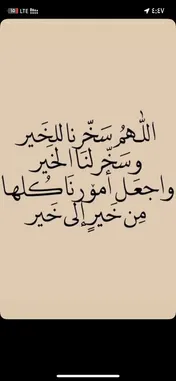 ٤:٤٧
LTE
اللهُم سَخّرنا للخَير
وسَخّر لنَا الخَير
واجعَل أمورنَا كُلها
مِن خَيرٍ إلى خَير